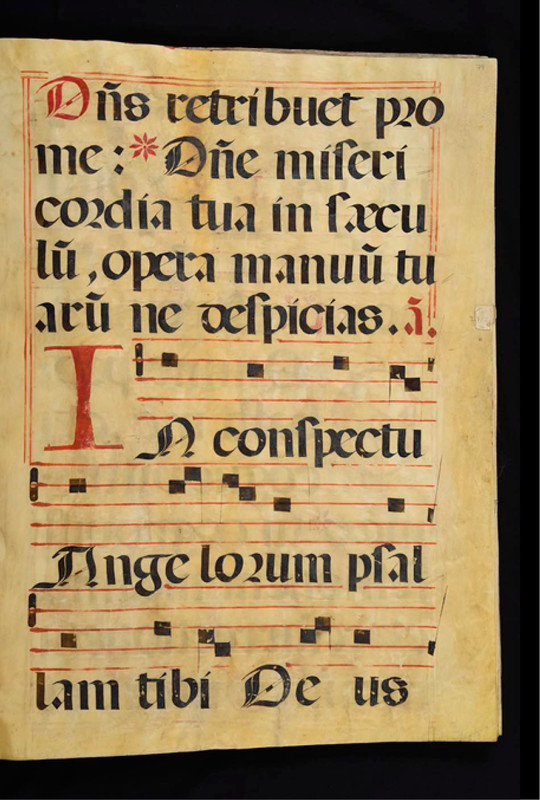 Dñs retribuet pro
me : * Dñe miseri
cordia tua in sæcu
lũ, opera manuũ tu
arũ ne despicias. ã.
IN conspectu
Angelorum psal
lam tibi De us